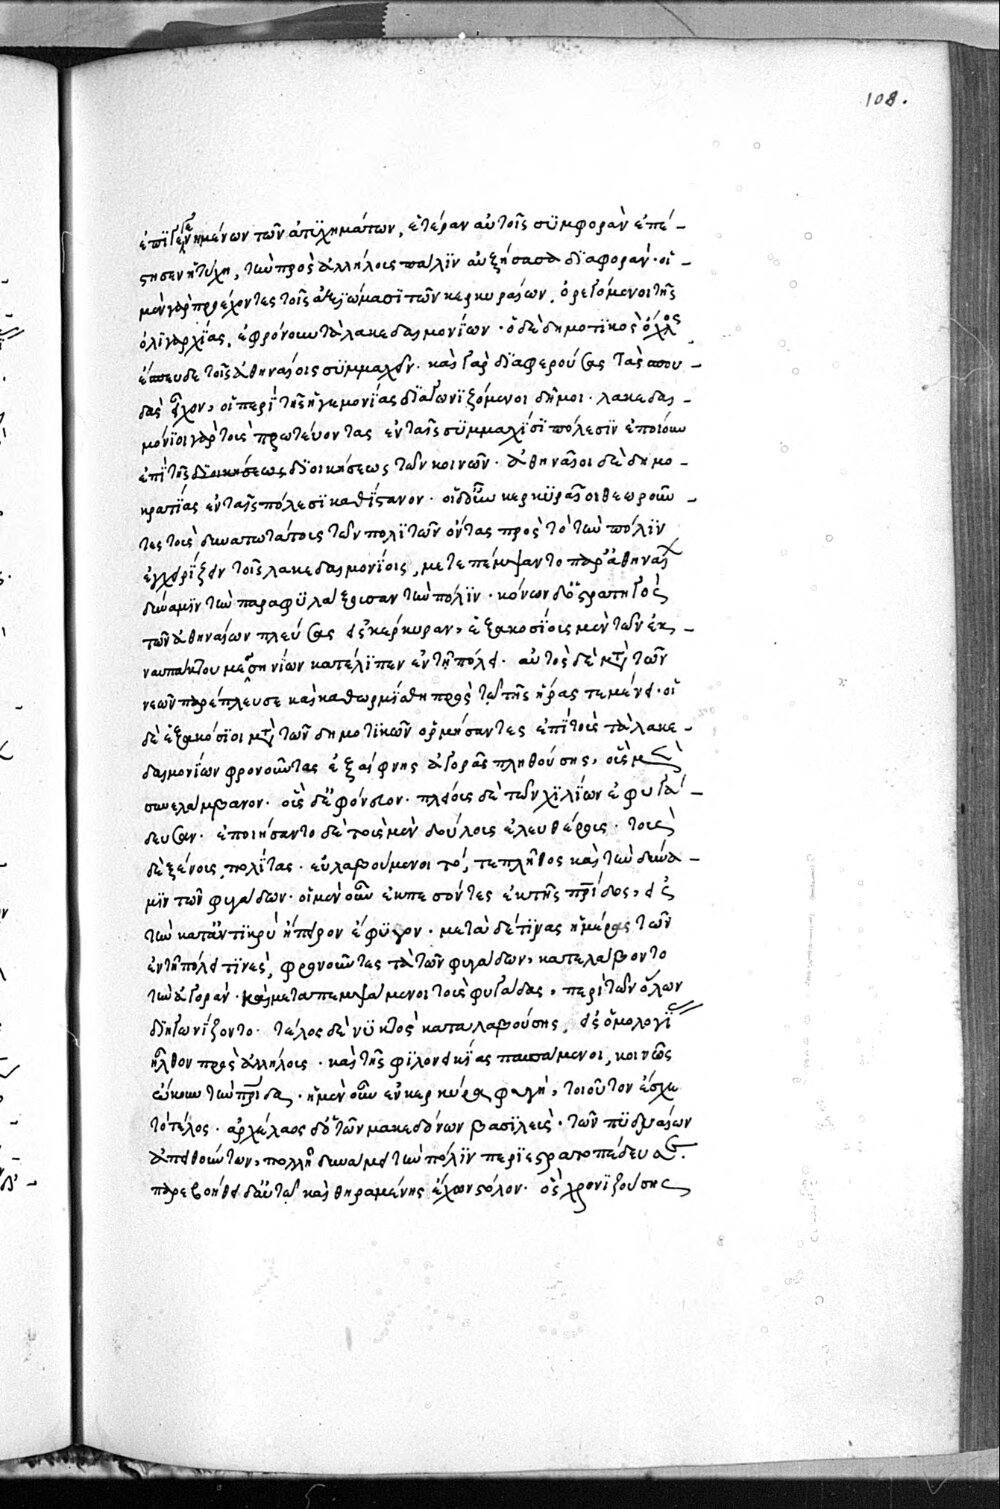 108.
ἐπιγεγενημένων τῶν ἀτυχημάτων, ἑτέραν αὐτοῖς συμφορὰν ἐπέ-
στησεν ἡ τύχη, τὴν πρὸς ἀλλήλους πάλιν αὐξήσασα διαφοράν· οἱ
μὲν γὰρ προέχοντες τοῖς ἀξιώμασι τῶν κερκυραίων, ὀρεγόμενοι τῆς
ὀλιγαρχίας, ἐφρόνουν τὰ λακεδαιμονίων· ὁ δὲ δημοτικὸς ὄχλος
ἔσπευδε τοῖς ἀθηναίοις συμμαχεῖν· καὶ γὰρ διαφερούσας τὰς σπου-
δὰς εἶχον, οἱ περὶ τῆς ἡγεμονίας διαγωνιζόμενοι δῆμοι· λακεδαι-
μόνιοι γὰρ τοὺς πρωτεύοντας ἐν ταῖς συμμαχίσι πόλεσιν ἐποίουν
ἐπὶ τῆς διοικήσεως διοικήσεως τῶν κοινῶν· ἀθηναῖοι δὲ δημο-
κρατίας ἐν ταῖς πόλεσι καθίστανον· οἱ δ' οὖν κερκυραῖοι θεωροῦν-
τες τοὺς δυνατωτάτους τῶν πολιτῶν ὄντας πρὸς τὸ τὴν πόλιν
ἐγχειρίζειν τοῖς λακεδαιμονίοις, μετεπέμψαντο παρ' ἀθηναί
δύναμιν τὴν παραφυλάξουσαν τὴν πόλιν· κόνων δ' ὁ στρατηγὸς
τῶν ἀθηναίων πλεύσας εἰς κέρκυραν, ἑξακοσίους μὲν τῶν ἐκ
ναυπάκτου μεσσηνίων κατέλιπεν ἐν τῇ πόλει· αὐτὸς δὲ μετὰ τῶν
νεῶν παρέπλευσε καὶ καθωρμίσθη πρὸς τῷ τῆς ἥρας τεμένει· οἱ
δὲ ἑξακόσιοι μετὰ τῶν δημοτικῶν ὁρμήσαντες ἐπὶ τοὺς τὰ λακε-
δαιμονίων φρονοῦντας ἐξαίφνης ἀγορᾶς πληθούσης, οὓς μὲν
συνελάμβανον· οὓς δ' ἐφόνευον· πλείους δὲ τῶν χιλίων ἐφυγά-
δευσαν· ἐποιήσαντο δὲ τοὺς μὲν δούλους ἐλευθέρους· τοὺς
δὲ ξένους πολίτας· εὐλαβούμενοι τό, τε πλῆθος καὶ τὴν δύνα-
μιν τῶν φυγάδων· οἱ μὲν οὖν ἐκπεσόντες ἐκ τῆς πρίδος, εἰς
τὴν καταντικρὺ ἤπειρον ἔφυγον· μετὰ δέ τινας ἡμέρας τῶν
ἐν τῇ πόλει τινὲς, φρονοῦντες τὰ τῶν φυγάδων, κατελάβοντο
τὴν ἀγοράν· καὶ μεταπεμψάμενοι τοὺς φυγάδας, περὶ τῶν ὅλων
διηγωνίζοντο· τέλος δὲ νυκτὸς καταλαβούσης, εἰς ὁμολογί
ἦλθον πρὸς ἀλλήλους· καὶ τῆς φιλονεικίας παυσάμενοι, κοινῶς
ᾤκουν τὴν πρίδα· ἡ μὲν οὖν ἐν κερκύρᾳ φυγὴ, τοιοῦτον ἔσχε
τὸ τέλος· ἀρχέλαος δ' ὁ τῶν μακεδόνων βασιλεὺς· τῶν πυδναίων
ἀπειθούντων, πολλῇ δυνάμει τὴν πόλιν περιεστρατοπέδευσεν.
παρεβοήθει δ' αὐτῷ καὶ θηραμένης ἔχων στόλον· ὃς χρονιζούσης